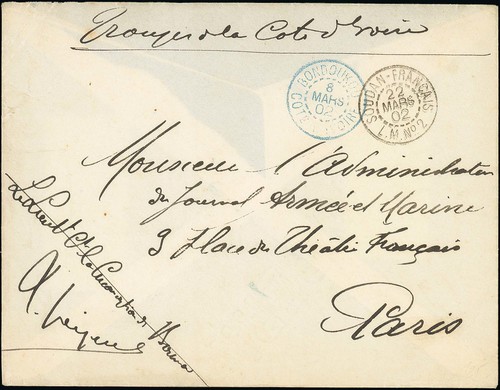 Troupes de la Cote d'Ivoire
BONDOUKOU
8
MARS
02
COTE D'IVOIRE
SOUDAN-FRANÇAIS
22
MARS
02
L.M. No 2
Monsieur l'Administrateur
du Journal Armée et Marine
3 Place du Théâtre Français
Paris
Le Lieut Ct la